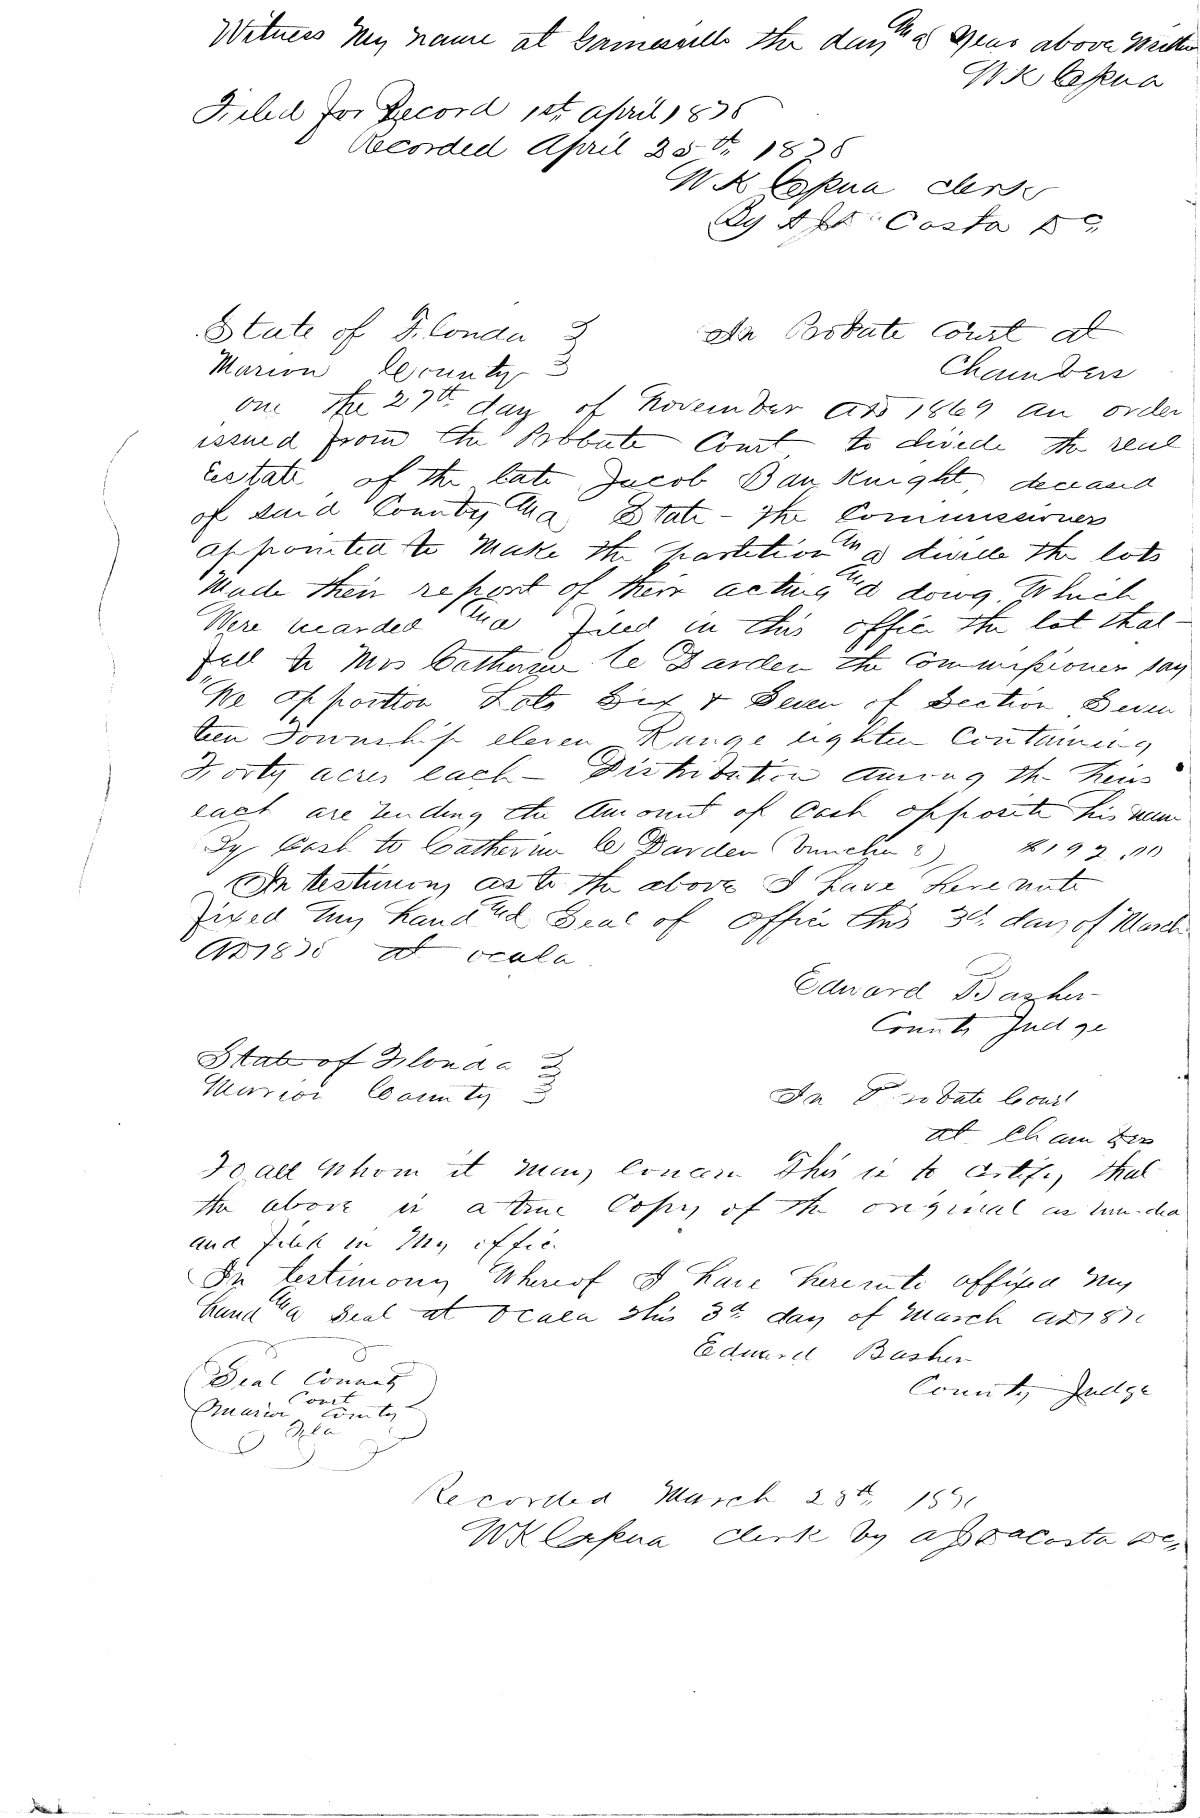 Witness My name at Gainesville the day and year above written
W K Cessna
Filed for Record 1st april 1875
Recorded April 25th 1875
W K Cessna clerk
By Costa
State of Florida } In Probate Court at
Marion County } Chambers
one the 27th day of November AD 1869 an order
issued from the Probbate Court to divide the real
Eestate of the late Jacob Bauknight deceasd
of said County and State - The Commissioners
appointed to Make the partetion and divide the lots
Made their report of their acting and doing. Which
Were and filed in this office the lot that
fell to Mrs Catherine C Darden the Commissioner say
"We apportion Lots Six & Seven of Section Seven
teen Township eleven Range eighteen Containing
Forty acres each - Distribution among the heirs"
each are the Amount of Cash opposite his name
By Cash to Catherine C Darden $197.00
In testimony as to the above I have hereunto
fixed My hand and Seal of office this 3d day of March
AD 1875 at ocala
Edward Basher
County Judge
State of Florida }
Marion County } In Probate Court
at Chambers
To all Whom it May Concern This is to certify that
the above is a true Copy of the original as
and filed in My office
In testimony Whereof I have hereunto affixed My
hand and Seal at Ocala this 3d day of March AD
Edward Basher
County Judge
Seal County
Court
Marion County
Fla
Recorded March 25th
W K Cessna clerk by